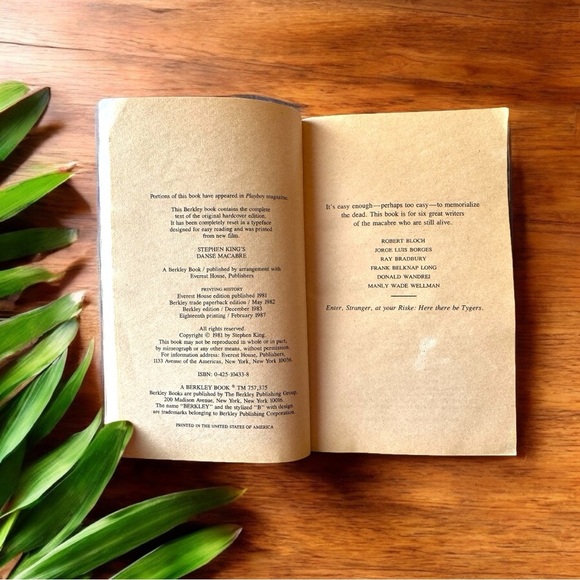 Portions of this book have appeared in Playboy magazine.
This Berkley book contains the complete
text of the original hardcover edition.
It has been completely reset in a typeface
designed for easy reading and was printed
from new film.
STEPHEN KING'S
DANSE MACABRE
A Berkley Book / published by arrangement with
Everest House, Publishers
PRINTING HISTORY
Everest House edition published 1981
Berkley trade paperback edition / May 1982
Berkley edition / December 1983
Eighteenth printing / February 1987
All rights reserved.
Copyright © 1981 by Stephen King.
This book may not be reproduced in whole or in part,
by mimeograph or any other means, without permission.
For information address: Everest House, Publishers,
1133 Avenue of the Americas, New York, New York 10036.
ISBN: 0-425-10433-8
A BERKLEY BOOK ® TM 757,375
Berkley Books are published by The Berkley Publishing Group,
200 Madison Avenue, New York, New York 10016.
The name "BERKLEY" and the stylized "B" with design
are trademarks belonging to Berkley Publishing Corporation.
PRINTED IN THE UNITED STATES OF AMERICA
It's easy enough—perhaps too easy—to memorialize
the dead. This book is for six great writers
of the macabre who are still alive.
ROBERT BLOCH
JORGE LUIS BORGES
RAY BRADBURY
FRANK BELKNAP LONG
DONALD WANDREI
MANLY WADE WELLMAN
Enter, Stranger, at your Riske: Here there be Tygers.